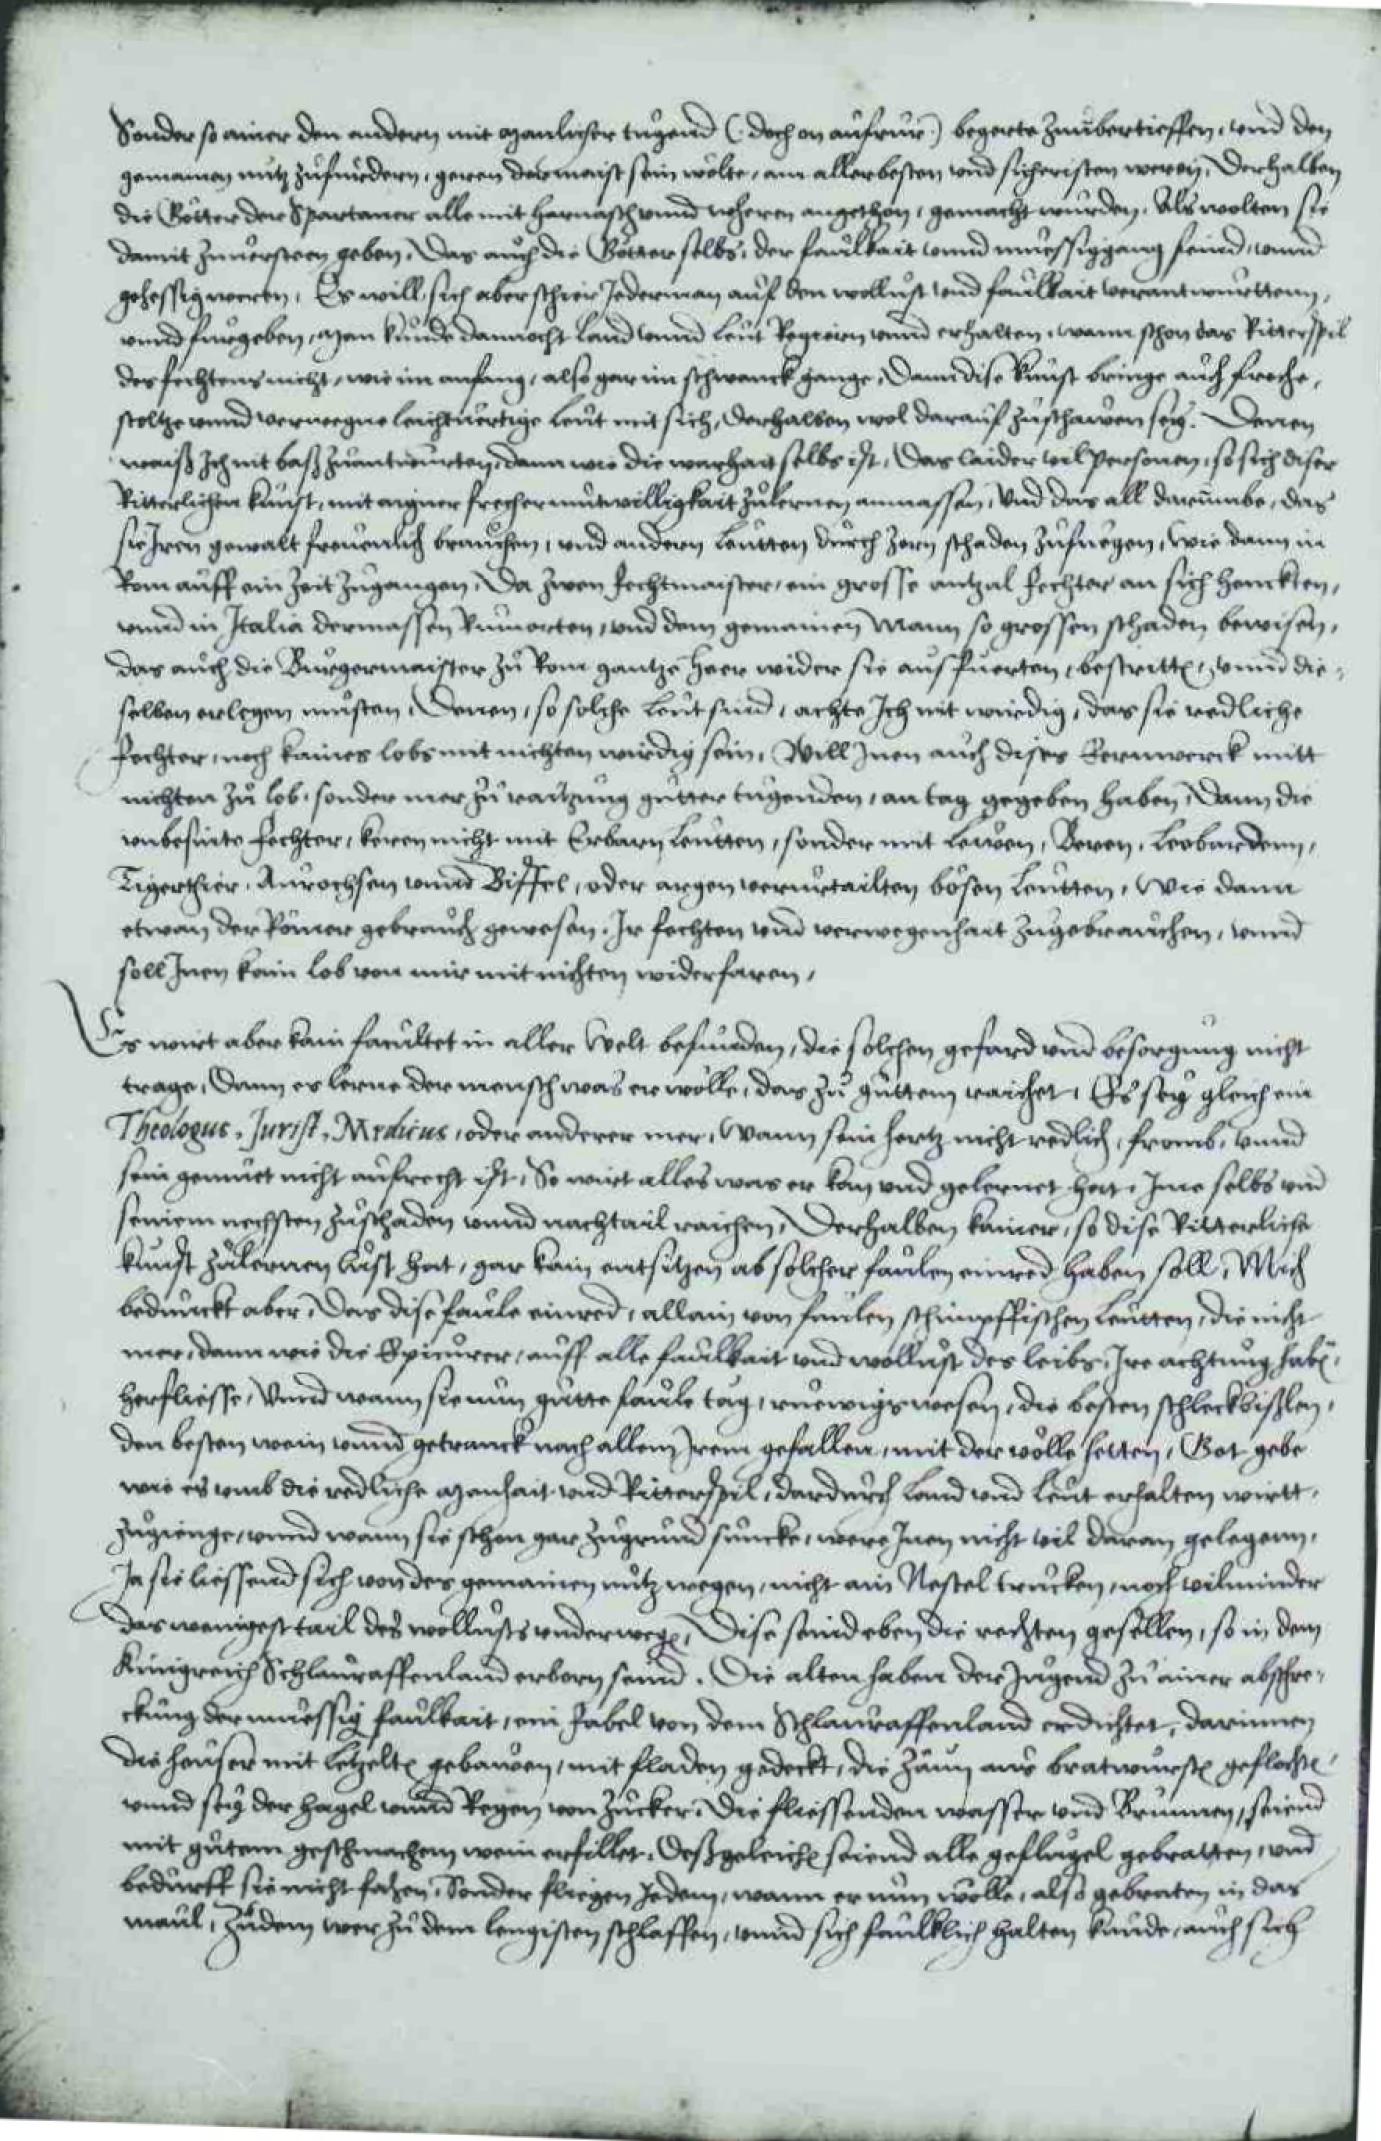 Sonder so ainer den andern mit manlicher tugend (doch on aufrur) begerte zuubertreffen, vnd den
gemainen nutz zufurdern, gerern der maist sein wolte, am allerbesten vnd sicheristen weren, Derhalben
die Götter der Spartaner alle mit harnasch vnnd weheren angethon, gemacht wurden. Als wolten sie
damit zuuersteen geben, Das auch die Götter selbs, der faulkait vnnd muessiggang feind, vnnd
gehessig weren, Es will sich aber schier Jederman auf den wollust vnd faulkait verantwurttenn,
vnnd furgeben, man kunde dannocht land vnnd leut Regiern vnnd erhalten, wann schon das Ritterspil
des fechtens nicht, wie im anfang, also gar im schwanck gange, Dann dise kunst bringe auch freche,
stoltze vnnd verwegne leichtuertige leut mit sich, derhalben wol darauf zuschawen sey. Denen
waiß Ich nit baß zuantwurten, dann wie die warhait selbs ist, Das laider vil personen, so sich diser
Ritterlichen kunst, mit aigner frecher mutwilligkait zulernen anmassen, Vnd das all darumbe, das
sie Iren gewalt freuenlich brauchen, vnd andern leutten durch zorn schaden zufuegen, wie dann in
Rom auff ein zeit zugangen, Da zwen fechtmaister, ein grosse antzal fechter an sich henckten,
vnnd in Italia dermassen Rumorten, vnd dem gemainen Mann so grossen schaden bewisen,
das auch die Burgermaister zu Rom gantze heer wider sie ausfuerten, bestritten, vnnd die-
selben erlegen musten, Denen, so solche leut sind, achte Ich nit wirdig, das sie redliche
fechter, noch kaines lobs mit nichten wirdig sein, Will Inen auch dises Bernwerck mitt
nichten zu lob, sonder mer zu raitzung gutter tugenden, an tag gegeben haben, Dann die
vnbesinte fechter, keren nicht mit Erbarn leutten, sonder mit lewen, Beren, Leobardenn,
Tigerthier, Aurochsen vnnd Biffel, oder argen verurtailten bösen leutten, Wie dann
etwan der Römer gebrauch gewesen, Ir fechten vnd verwegenhait zugebrauchen, vnnd
soll Inen kain lob von mir mit nichten widerfaren,
Es wirt aber kain facultet in aller Welt befunden, die solchen gefard vnd besorgung nicht
trage, Dann es lerne der mensch was er wölle, das zu guttem raichet, Es sey gleich ein
Theologus, Jurist, Medicus, oder anderer mer, Wann sein hertz nicht redlich, fromb, vnnd
sein gemuet nicht aufrecht ist, So wirt alles was er kan vnd gelernet hat, Ime selbs vnd
seinem nechsten zuschaden vnnd nachtail raichen, Derhalben kainer, so dise Ritterliche
kunst zulernen lust hat, gar kain entsitzen ab solcher faulen einred haben soll, Mich
bedunckt aber, Das dise faule einred, allain von faulen schimpffischen leutten, die nicht
mer, dann wie die Epicurer, auff alle faulkait vnd wollust des leibs, Ire achtung haben,
herfliesse, Vnnd wann sie nun gutte faule tag, ruewigs wesen, die besten schleckbißlen,
den besten wein vnnd getranck nach allem Irem gefallen, mit der wölle hetten, Got gebe
wie es vmb die redliche manhait vnd Ritterspil, dardurch land vnd leut erhalten wirtt,
zugienge, vnnd wann sie schon gar zugrund suncke, were Inen nicht vil daran gelegenn,
Ja sie liessend sich von des gemainen nutz wegen, nicht ain Nestel trucken, noch vilminder
das wenigest tail des wollusts vnderwegen, Dise seind eben die rechten gesellen, so in dem
Künigreich Schlauraffenland erborn seind. Die alten haben der Jugend zu ainer abschre-
ckung der muessig faulkait, ein fabel von dem Schlauraffenland erdichtet, darinnen
die heuser mit letzelten gebawen, mit fladen gedeckt, die Zaun aus bratwursten geflochten,
vnnd sey der hagel vnnd Regen von Zucker, Die fliessenden wasser vnd Brunnen, seiend
mit gutem geschmachem wein erfillet, Deßgeleichen seiend alle geflugel gebratten, vnd
bedurff sie nicht fahen, Sonder fliegen Jedem, wann er nun wölle, also gebraten in das
maul, Zudem wer zu dem lengisten schlaffen, vnnd sich faulklich halten kunde, auch sich